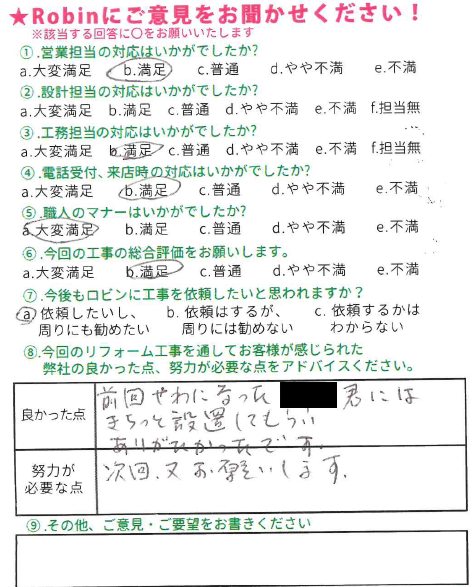 ★Robinにご意見をお聞かせください！
※該当する回答に〇をお願いいたします
①.営業担当の対応はいかがでしたか?
a.大変満足 b.満足 c.普通 d.やや不満 e.不満
②.設計担当の対応はいかがでしたか?
a.大変満足 b.満足 c.普通 d.やや不満 e.不満 f.担当無
③.工務担当の対応はいかがでしたか?
a.大変満足 b.満足 c.普通 d.やや不満 e.不満 f.担当無
④.電話受付、来店時の対応はいかがでしたか?
a.大変満足 b.満足 c.普通 d.やや不満 e.不満
⑤.職人のマナーはいかがでしたか?
a.大変満足 b.満足 c.普通 d.やや不満 e.不満
⑥.今回の工事の総合評価をお願いします。
a.大変満足 b.満足 c.普通 d.やや不満 e.不満
⑦.今後もロビンに工事を依頼したいと思われますか？
a 依頼したいし、 b. 依頼はするが、 c. 依頼するかは
周りにも勧めたい 周りには勧めない わからない
⑧.今回のリフォーム工事を通してお客様が感じられた
弊社の良かった点、努力が必要な点をアドバイスください。
良かった点
前回 になった 君には
きちっと設置してもらい
ありがたかったです。
努力が
必要な点
次回.又お願いします.
⑨.その他、ご意見・ご要望をお書きください